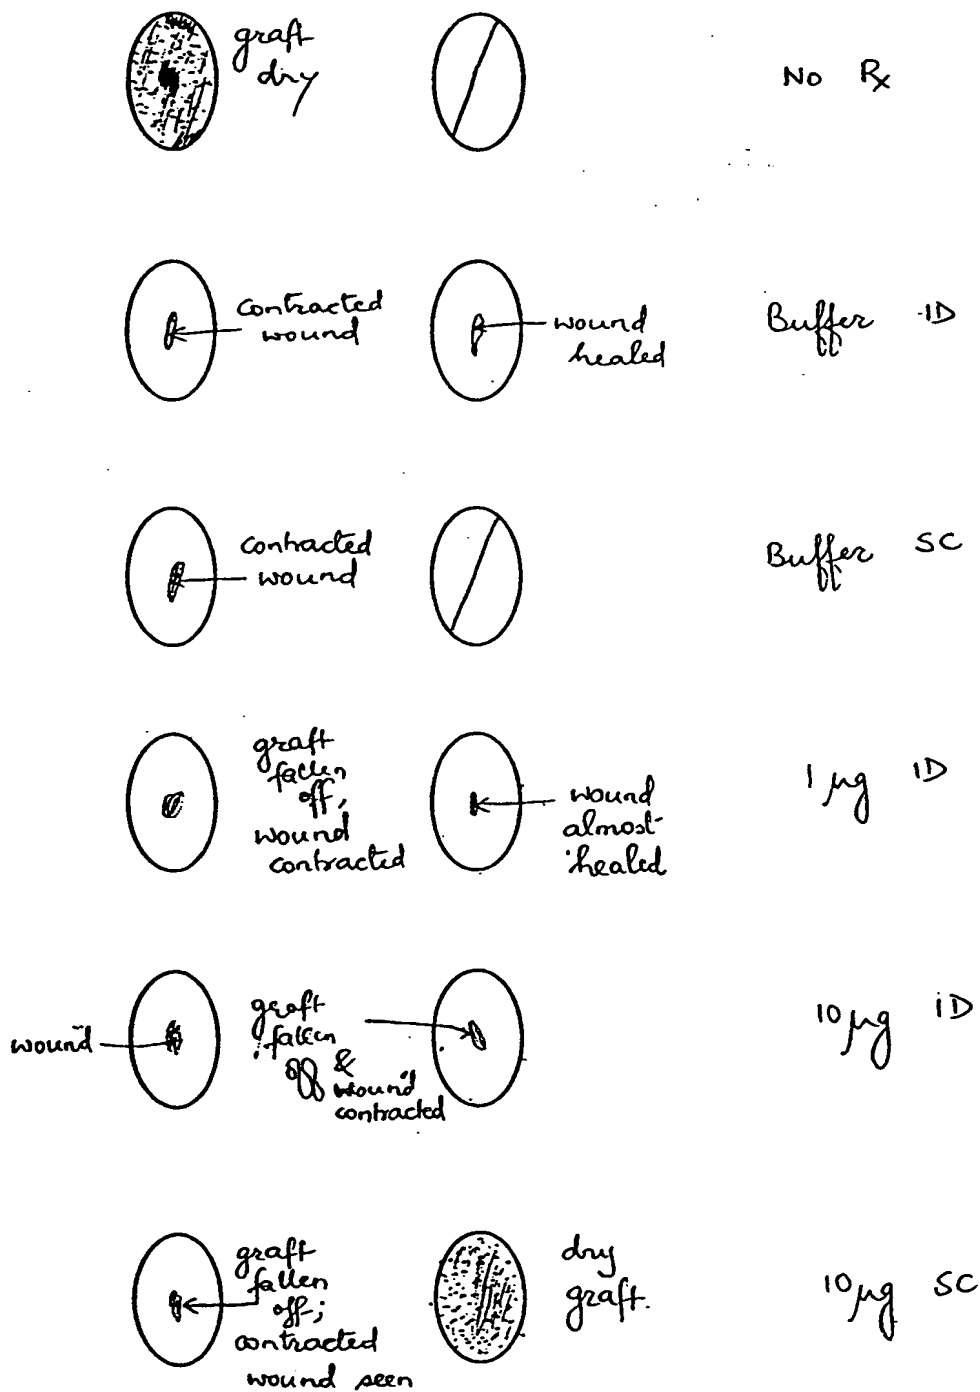 graft
dry
No Rx
contracted
wound
wound
healed
Buffer ID
contracted
wound
Buffer SC
graft
fallen
off;
wound
contracted
wound
almost
healed
1 μg ID
wound
graft
fallen
off &
wound
contracted
10 μg iD
graft
fallen
off;
contracted
wound seen
dry
graft.
10 μg SC